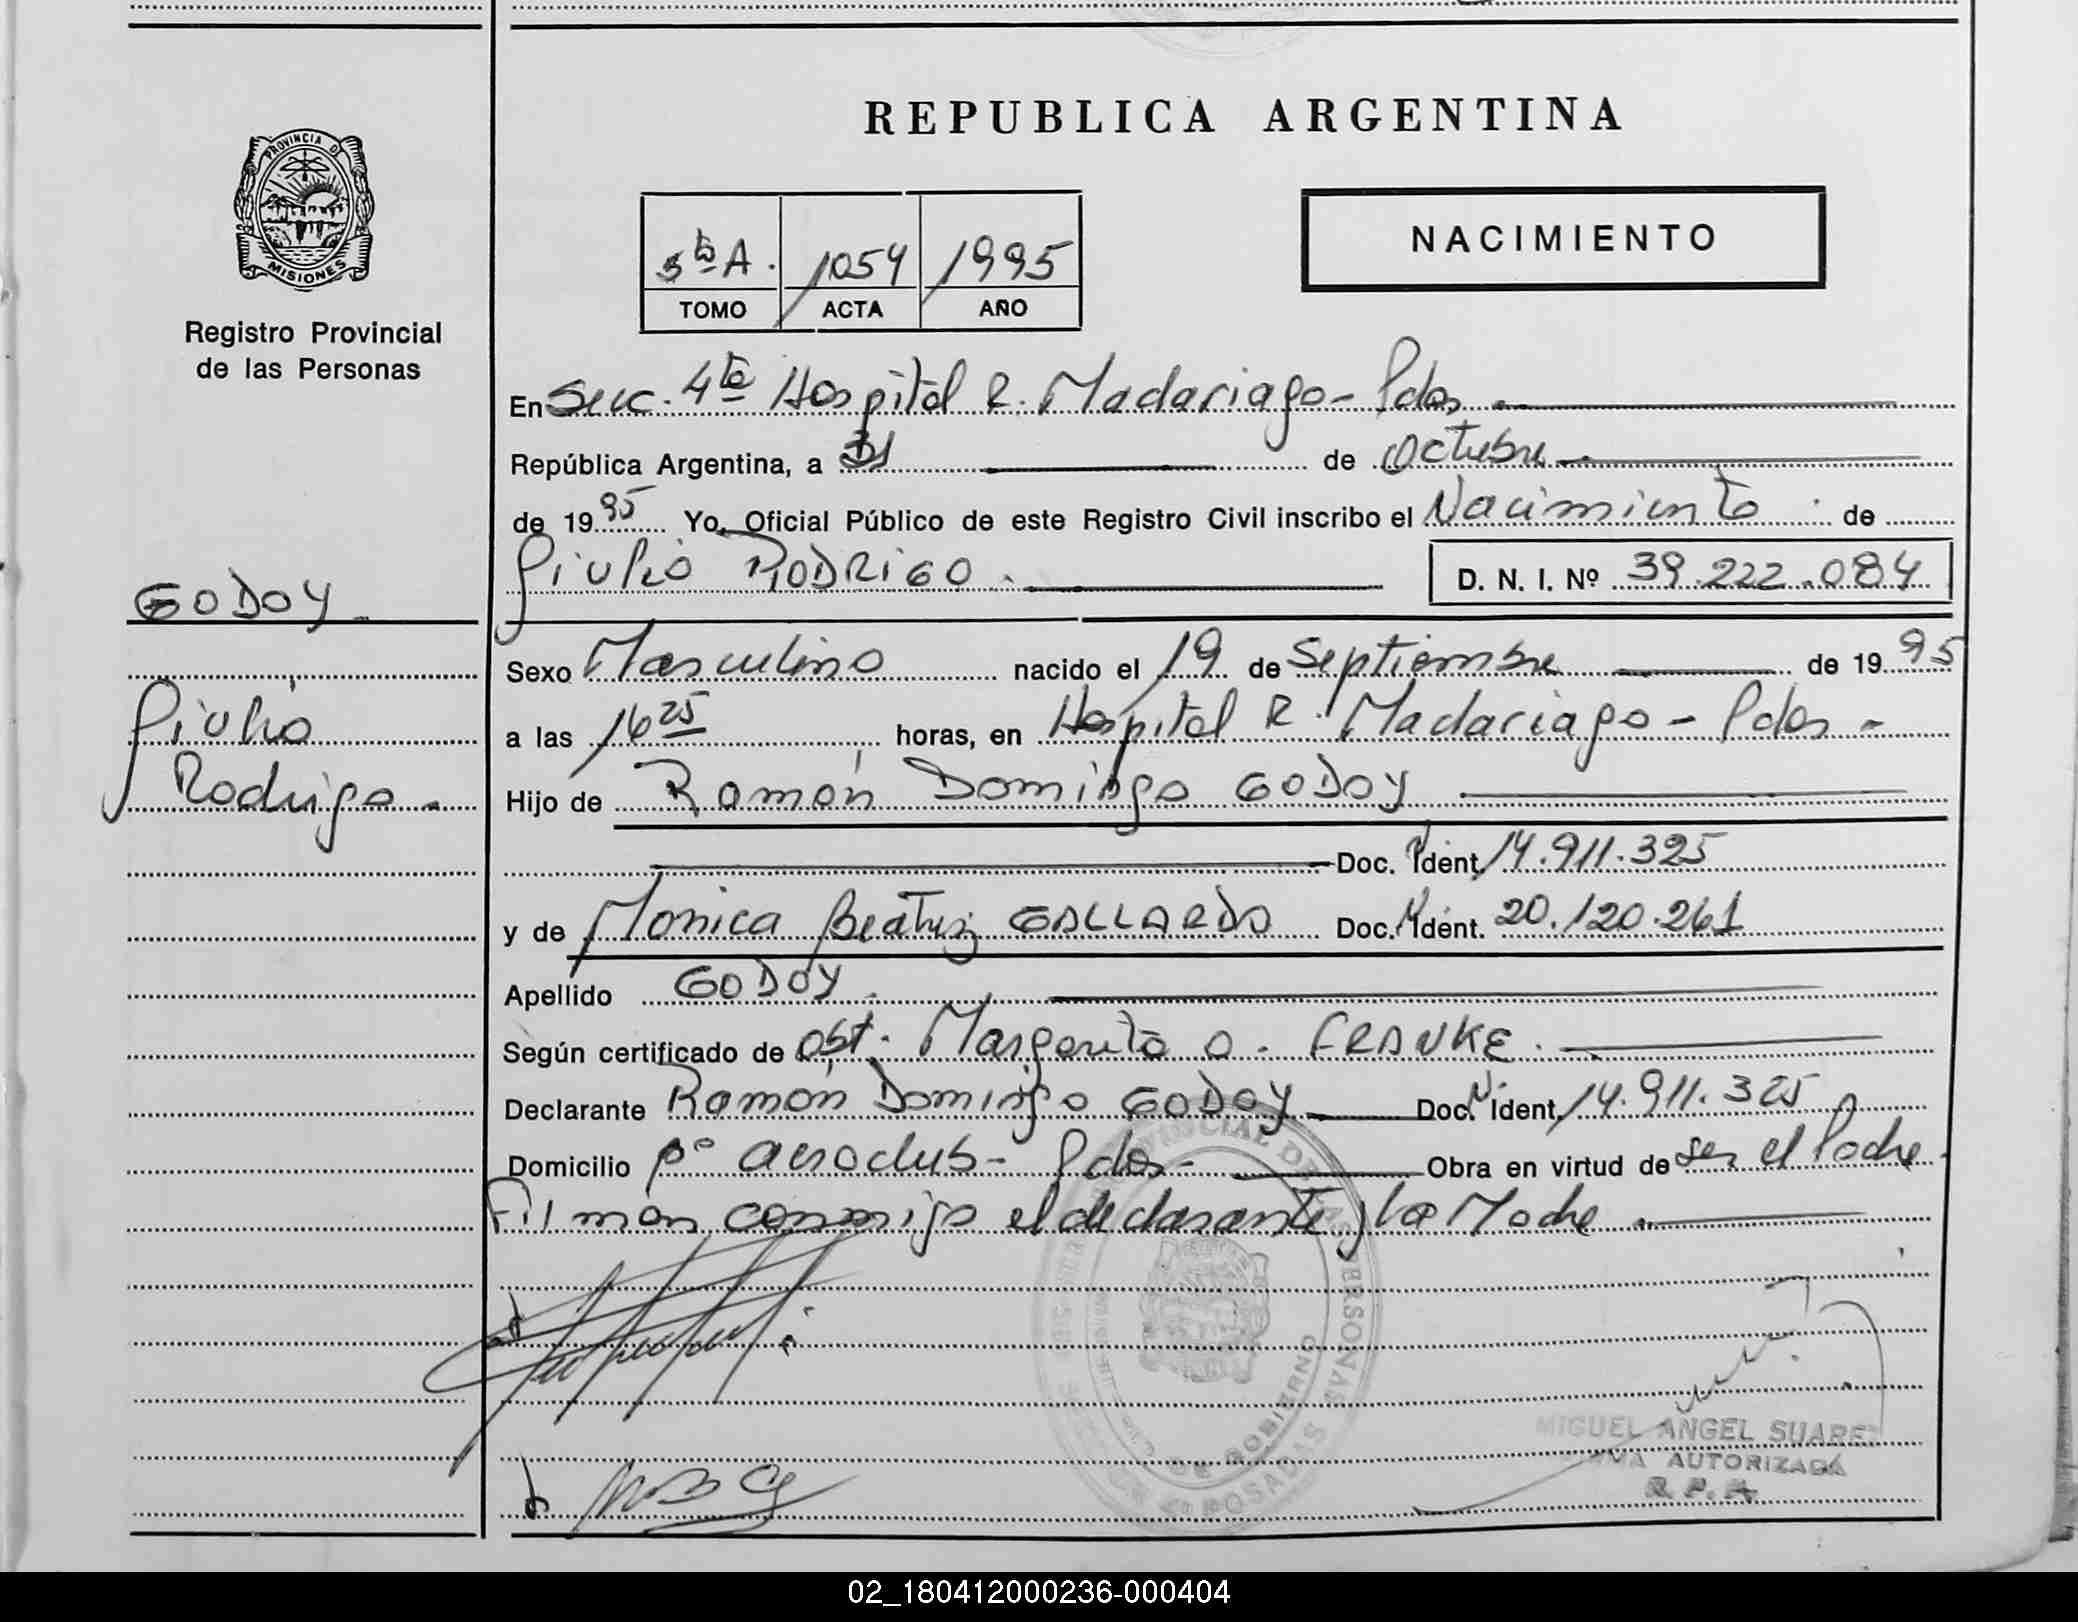 REPUBLICA ARGENTINA
PROVINCIA DE
MISIONES
Registro Provincial
de las Personas
5to A. 1054 1995
TOMO ACTA AÑO
NACIMIENTO
En Secc. 4ta Hospital R. Madariaga - Pdas.
República Argentina, a 31 de Octubre
de 1995 Yo, Oficial Público de este Registro Civil inscribo el Nacimiento de
Giulio RODRIGO.
D. N. I. Nº 39.222.084
GODOY
Giulio
Rodrigo.
Sexo Masculino nacido el 19 de Septiembre de 1995
a las 16 25 horas, en Hospital R. Madariaga - Pdas -
Hijo de Ramón Domingo GODOY
Doc. Ident. 14.911.325
y de Monica Beatriz GALLARDO Doc. Ident. 20.120.261
Apellido GODOY.
Según certificado de obst. Margarita O. FRANKE.
Declarante Ramón Domingo GODOY Doc. Ident. 14.911.325
Domicilio Bº aeroclub - Pdas - Obra en virtud de ser el Padre.
Firman conmigo el declarante y la Madre.
MIGUEL ANGEL SUAREZ
FIRMA AUTORIZADA
R. P. P.
02_180412000236-000404